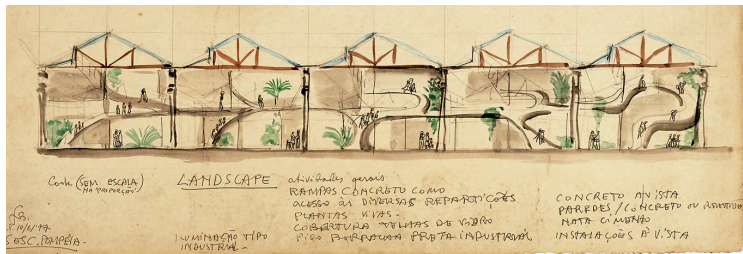 Corte (SEM ESCALA)
NA PROPORÇÃO
LANDSCAPE atividades gerais
RAMPAS CONCRETO COMO
ACESSO ÀS DIVERSAS REPARTIÇÕES
PLANTAS VIVAS.
COBERTURA TELHAS DE VIDRO
PISO BORRACHA PRETA INDUSTRIAL
CONCRETO A VISTA
PAREDES/CONCRETO OU
NATA CIMENTO
INSTALAÇÕES À VISTA
SESC. POMPÉIA.
ILUMINAÇÃO TIPO
INDUSTRIAL.